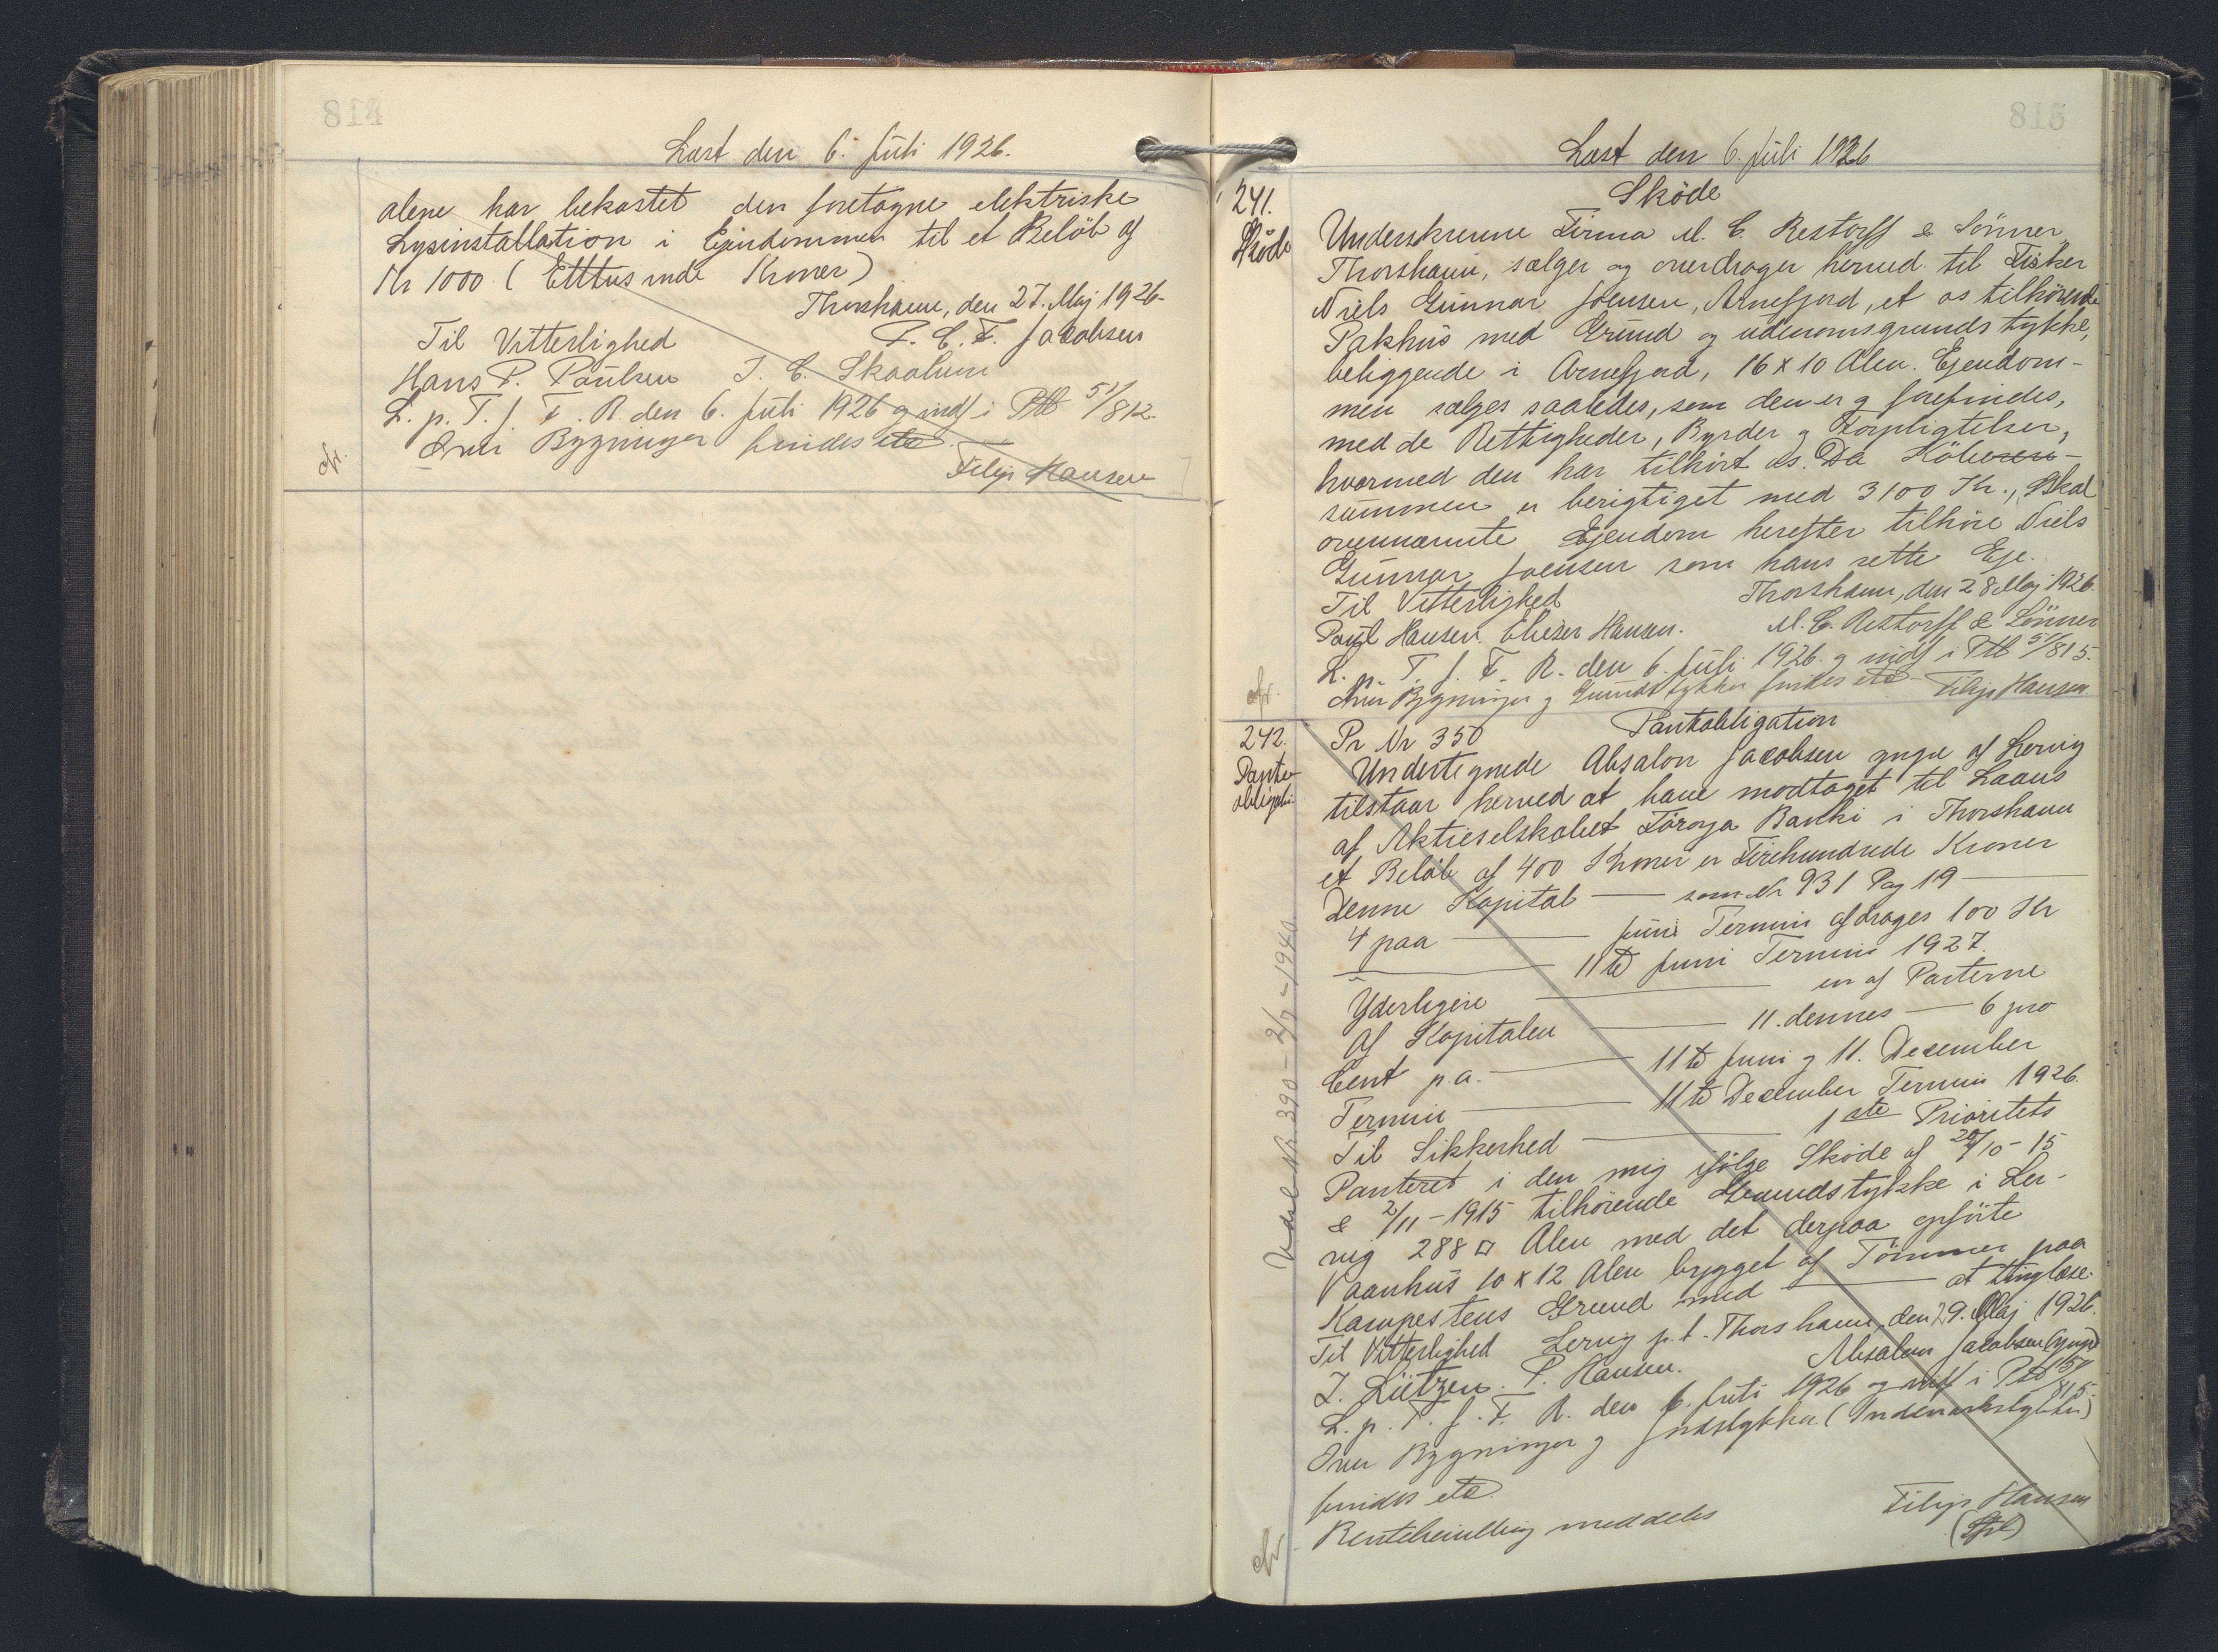 814
Læst den 6. Juli 1926.
alene har bekostet den foretagne elektriske
Lysinstallation i Ejendommen til et Beløb af
Kr 1000 (Ettusinde Kroner)
Thorshavn, den 27. Maj 1926.
Til Vitterlighed P. C. F. Jacobsen
Hans P. Poulsen J. C. Skaalum
L. p. T. f. F. R. den 6. Juli 1926 og indf i Ptb 51/812.
Over Bygninger findes etc.
Filip Hansen
815
Læst den 6. Juli 1926
241. Skøde
Skøde
Underskrevne Firma M. C. Restorff & Sønner,
Thorshavn, sælger og overdrager herved til Fisker
Niels Gunnar Joensen, Arnefjord, et os tilhørende
Pakhus med Grund og udenomsgrundstykke,
beliggende i Arnefjord, 16 x 10 Alen. Ejendom-
men sælges saaledes, som den er og forefindes,
med de Rettigheder, Byrder og Forpligtelser,
hvormed den har tilhørt os. Da Købe-
summen er berigtiget med 3100 Kr., skal
ovennævnte Ejendom herefter tilhøre Niels
Gunnar Joensen som hans rette Eje.
Til Vitterlighed Thorshavn, den 28 Maj 1926.
Poul Hansen. Elieser Hansen. M. C. Restorff & Sønner
L. p. T. f. F. R. den 6. Juli 1926 og indf i Ptb 51/815.
Over Bygninger og Grundstykker findes etc Filip Hansen
242. Pante-
obligation
Pr Nr 350 Pantobligation
Undertegnede Absalon Jacobsen yngre af Lervig
tilstaar herved at have modtaget til Laans
af Aktieselskabet Føroya Banki i Thorshavn
et Beløb af 400 Kroner er Firehundrede Kroner
Denne Kapital — som Nr 931 Pag 19 —
4 paa — Juni Termin afdrages 100 Kr
— 11te Juni Termin 1927.
Yderligere — en af Parterne
Af Kapitalen — 11. dennes — 6 pro
Cent p.a. — 11te Juni og 11. December
Termin — 11te December Termin 1926.
Til Sikkerhed — 1ste Prioritets
Panteret i den mig ifølge Skøde af 20/10-15
& 2/11-1915 tilhørende Grundstykke i Ler-
vig 288 □ Alen med det derpaa opførte
Vaanhus 10 x 12 Alen bygget af Tømmer paa
Kampestens Grund med — at tinglæse.
Til Vitterlighed Lervig p.t. Thorshavn, den 29. Maj 1926.
J. Lützen. P. Hansen. Absalon Jacobsen (yngre)
L. p. T. f. F. R. den 6. Juli 1926 og indf i Ptb 51/815.
Over Bygninger og Jordstykker (Indmarkstykker)
findes etc.
Rentebevilling meddeles Filip Hansen
Nr 390 - 2/7-1940